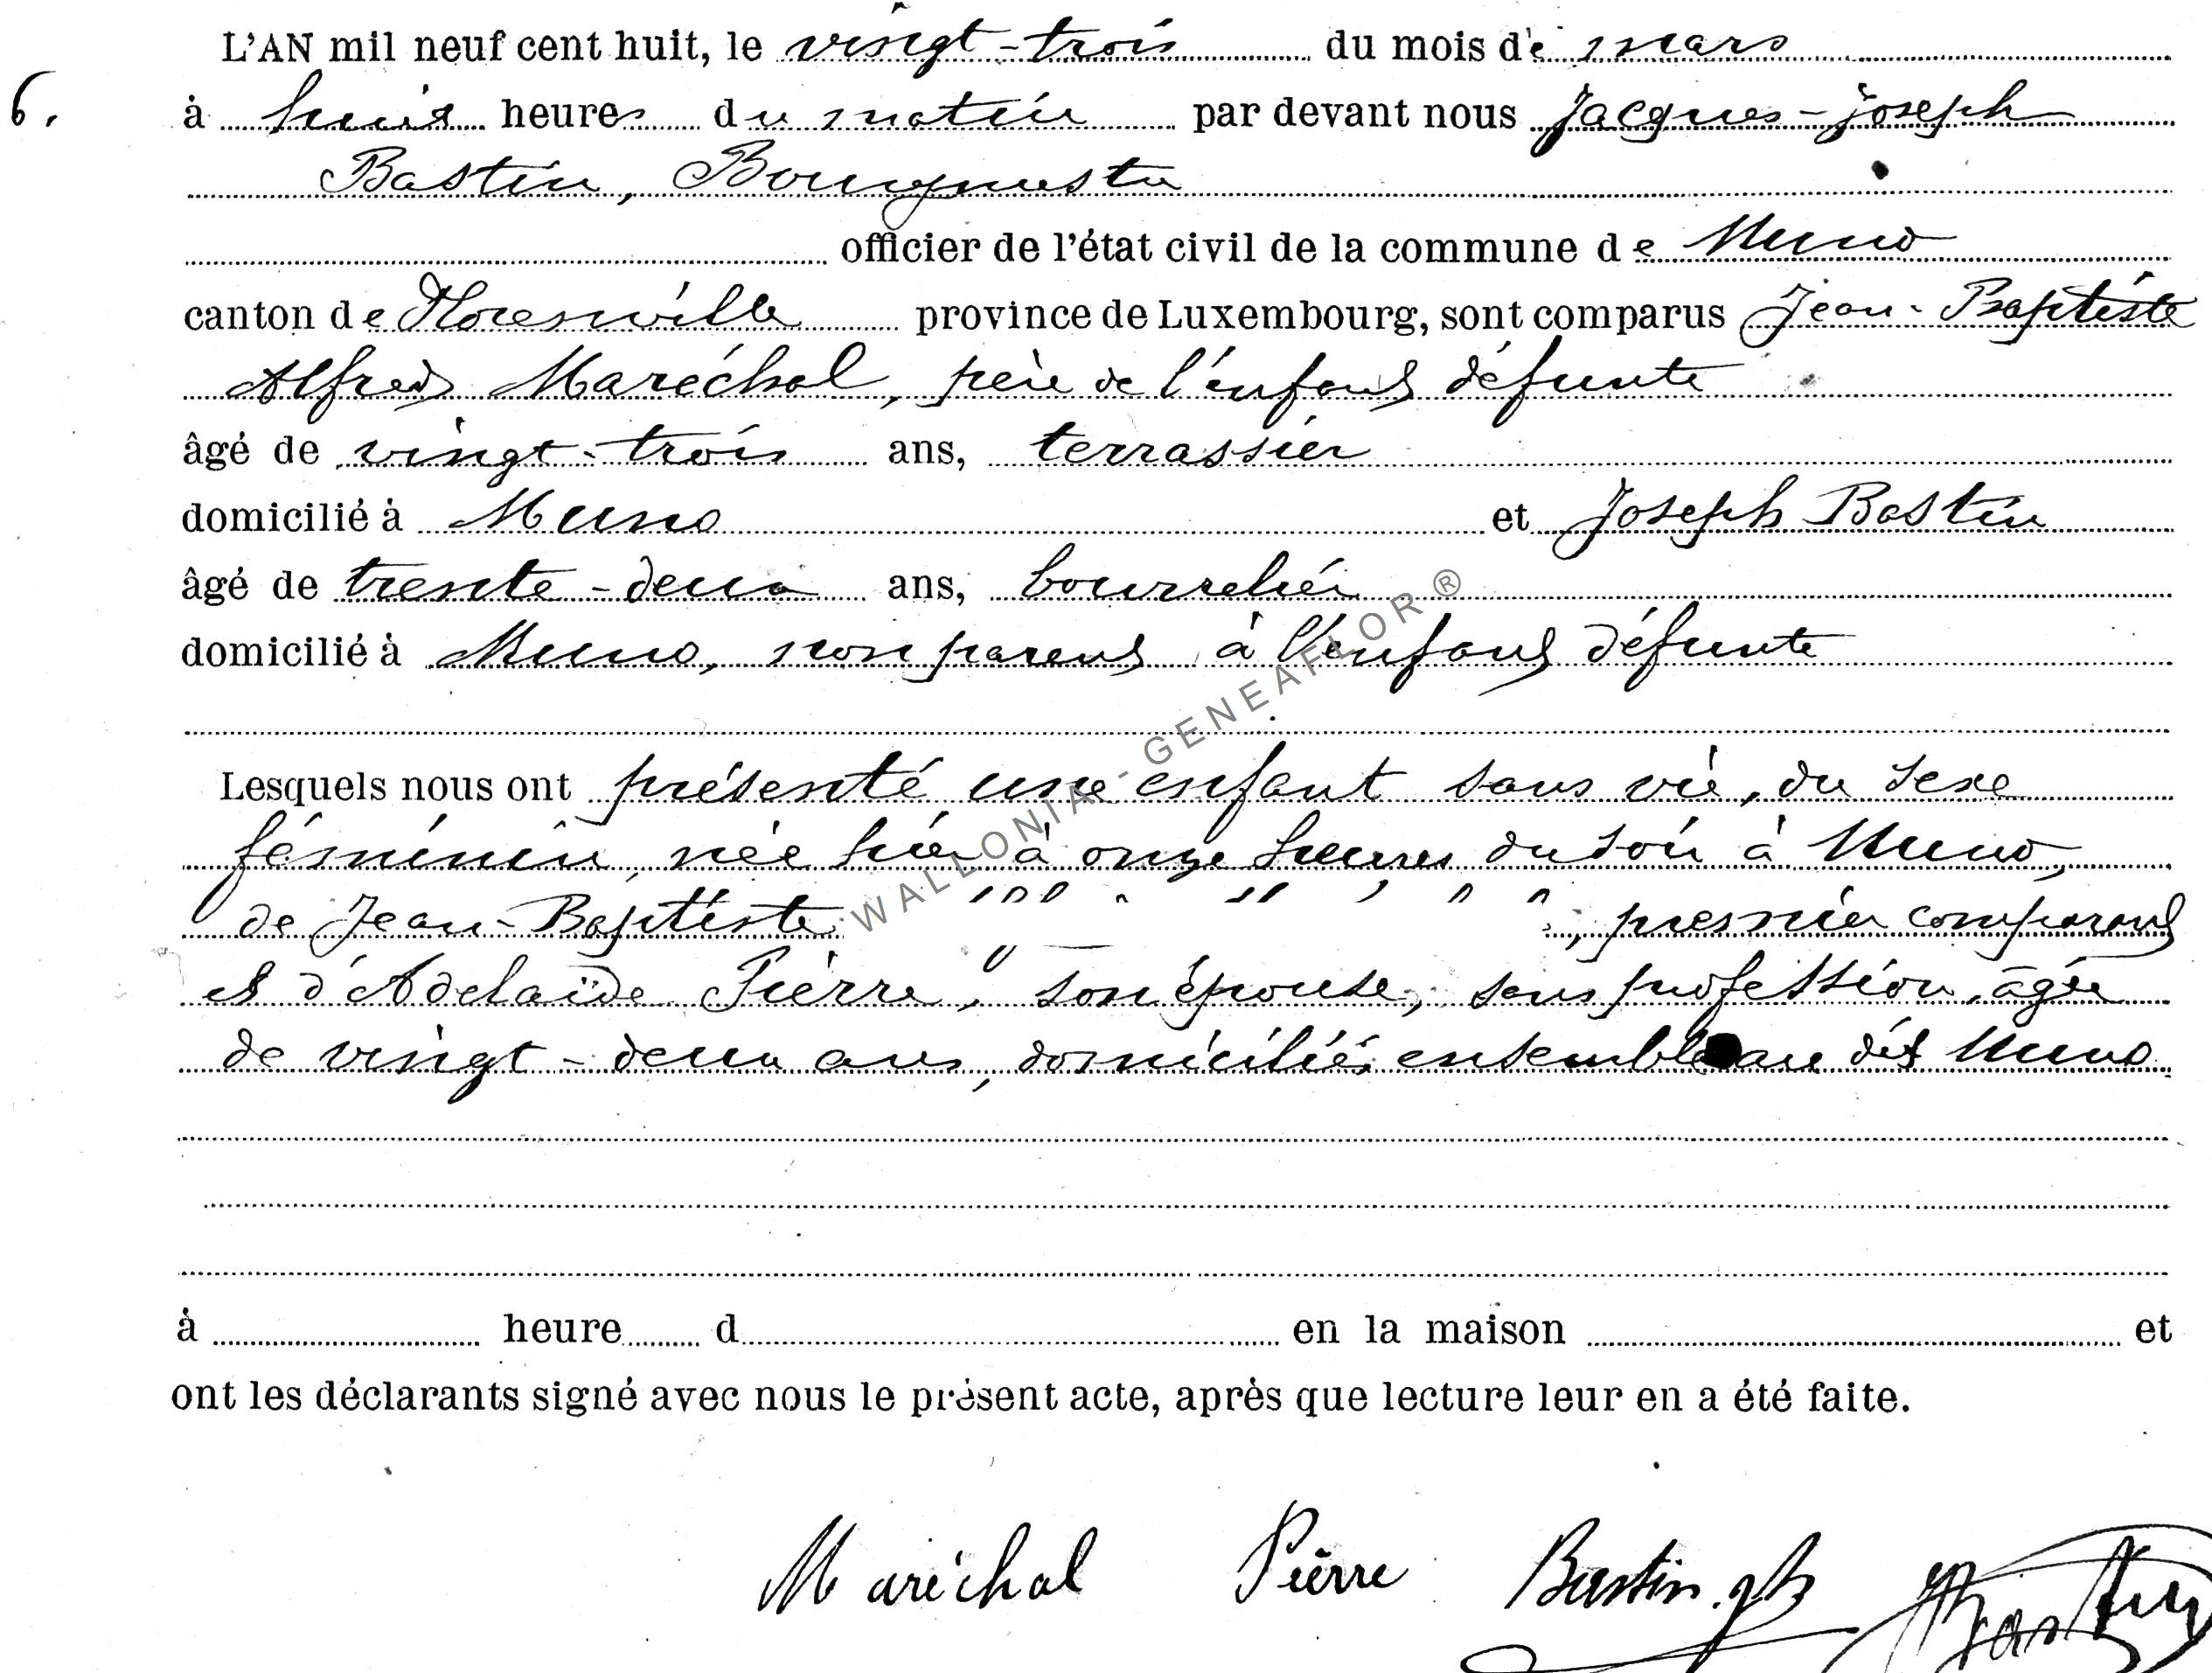 L'AN mil neuf cent huit, le vingt-trois du mois de mars
6. à huit heures du matin par devant nous Jacques-Joseph
Bastin, Bourgmestre
officier de l'état civil de la commune de Muno
canton de Florenville province de Luxembourg, sont comparus Jean-Baptiste
Alfred Maréchal, père de l'enfant défunte
âgé de vingt-trois ans, terrassier
domicilié à Muno et Joseph Bastin
âgé de trente-deux ans, bourrelier
domicilié à Muno, non parent à l'enfant défunte
Lesquels nous ont présenté une enfant sans vie, du sexe
féminin, née hier à onze heures du soir à Muno,
de Jean-Baptiste , premier comparant
et d'Adelaïde Pierre, son épouse, sans profession, âgée
de vingt-deux ans, domiciliés ensemble au dit Muno.
à heure d en la maison et
ont les déclarants signé avec nous le présent acte, après que lecture leur en a été faite.
Maréchal Pierre Bastin Jh Bastin
WALLONIA - GENEAFLOR ®